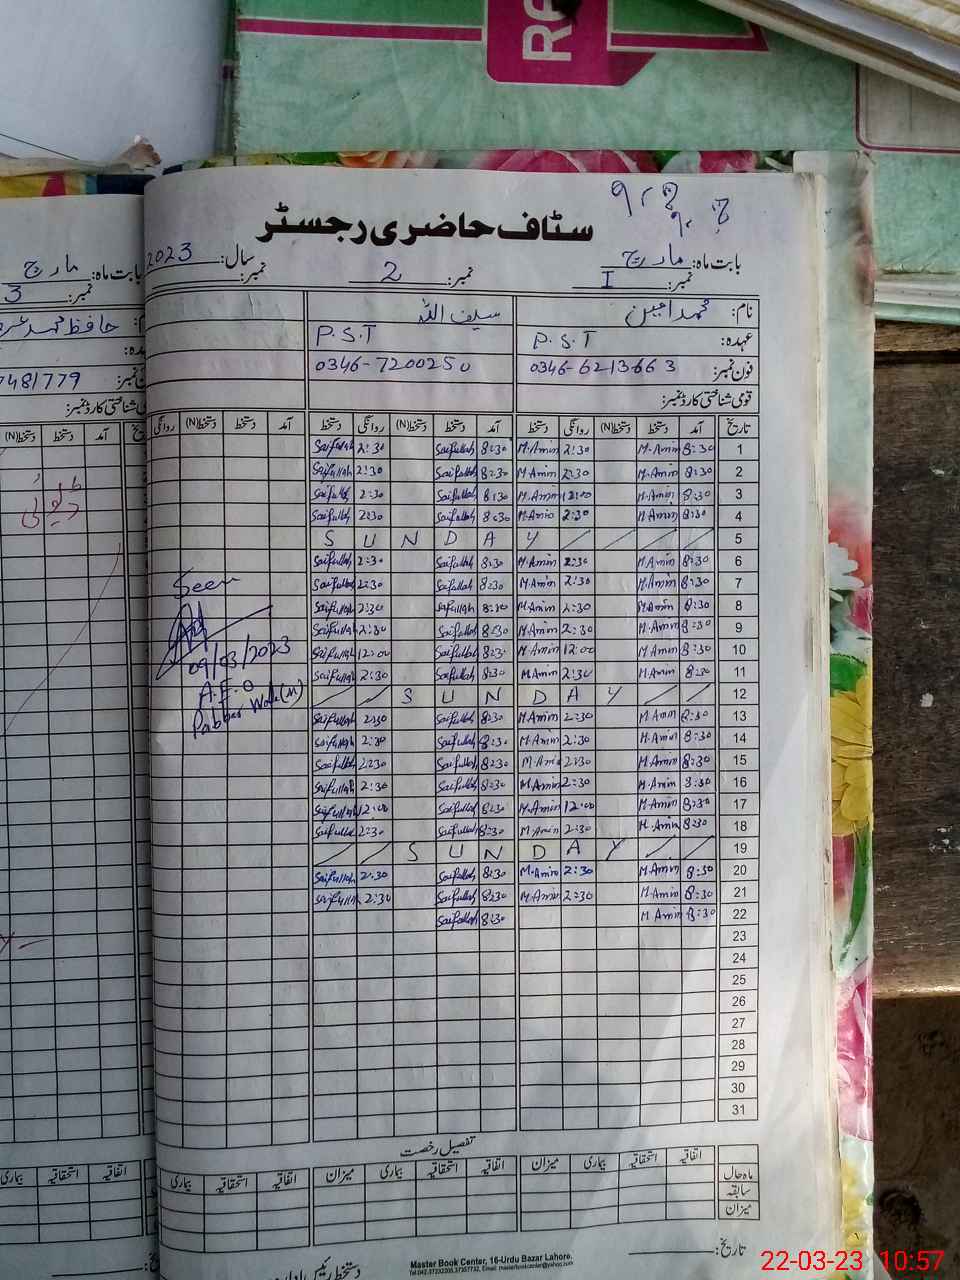 RE
سٹاف حاضری رجسٹر
بابت ماہ: مارچ سال: 2023
نمبر: I نمبر: 2 نمبر:
نام: محمد امین سیف اللہ
عہدہ: P.S.T P.S.T
فون نمبر: 0346-6213663 0346-7200250
قومی شناختی کارڈ نمبر:
تاریخ آمد دستخط دستخط(N) روانگی آمد دستخط دستخط(N) روانگی آمد دستخط دستخط(N) روانگی
1 8:30 M.Amin 2:30 M.Amin 8:30 Saifullah 2:30 Saifullah
2 8:30 M.Amin 2:30 M.Amin 8:30 Saifullah 2:30 Saifullah
3 8:30 M.Amin 12:00 M.Amin 8:30 Saifullah 2:30 Saifullah
4 8:30 M.Amin 2:30 M.Amin 8:30 Saifullah 2:30 Saifullah
5 S U N D A Y
6 8:30 M.Amin 2:30 M.Amin 8:30 Saifullah 2:30 Saifullah
7 8:30 M.Amin 2:30 M.Amin 8:30 Saifullah 2:30 Saifullah
8 8:30 M.Amin 2:30 M.Amin 8:30 Saifullah 2:30 Saifullah
9 8:30 M.Amin 2:30 M.Amin 8:30 Saifullah 2:30 Saifullah
10 8:30 M.Amin 12:00 M.Amin 8:30 Saifullah 12:00 Saifullah
11 8:30 M.Amin 2:30 M.Amin 8:30 Saifullah 2:30 Saifullah
12 S U N D A Y
13 8:30 M.Amin 2:30 M.Amin 8:30 Saifullah 2:30 Saifullah
14 8:30 M.Amin 2:30 M.Amin 8:30 Saifullah 2:30 Saifullah
15 8:30 M.Amin 2:30 M.Amin 8:30 Saifullah 2:30 Saifullah
16 8:30 M.Amin 2:30 M.Amin 8:30 Saifullah 2:30 Saifullah
17 8:30 M.Amin 12:00 M.Amin 8:30 Saifullah 12:00 Saifullah
18 8:30 M.Amin 2:30 M.Amin 8:30 Saifullah 2:30 Saifullah
19 S U N D A Y
20 8:30 M.Amin 2:30 M.Amin 8:30 Saifullah 2:30 Saifullah
21 8:30 M.Amin 2:30 M.Amin 8:30 Saifullah 2:30 Saifullah
22 8:30 M.Amin 8:30 Saifullah
23
24
25
26
27
28
29
30
31
Seen
09/03/2023
A.E.O
Pabbar Wala(M)
تفصیل رخصت
اتفاقیہ استحقاقیہ بیماری میزان اتفاقیہ استحقاقیہ بیماری میزان اتفاقیہ استحقاقیہ بیماری
ماہ حال
سابقہ
میزان
تاریخ:
Master Book Center, 16-Urdu Bazar Lahore.
بابت ماہ: مارچ
نمبر: 3
7481779
آمد دستخط دستخط(N)
اتفاقیہ استحقاقیہ بیماری
22-03-23 10:57